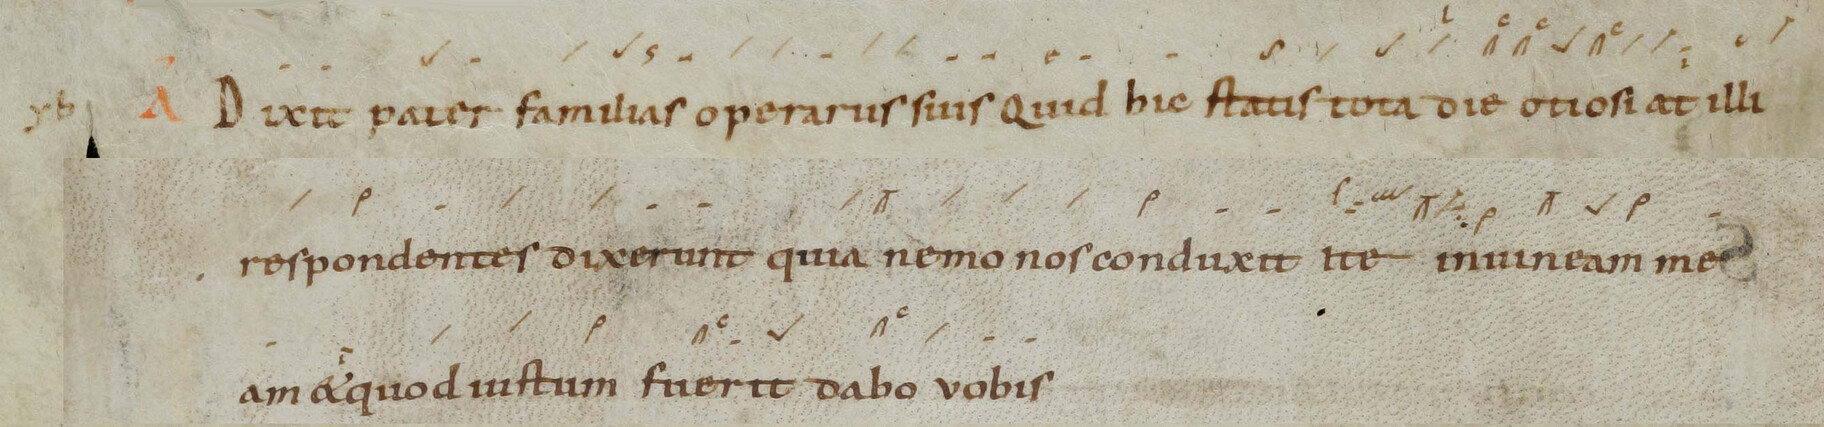 yb A Dixit pater familias operarus suis Quid hic statis tota die otiosi at illi
respondentes dixerunt quia nemo nos conduxit ite inuineam me
am & quod iustum fuerit dabo vobis